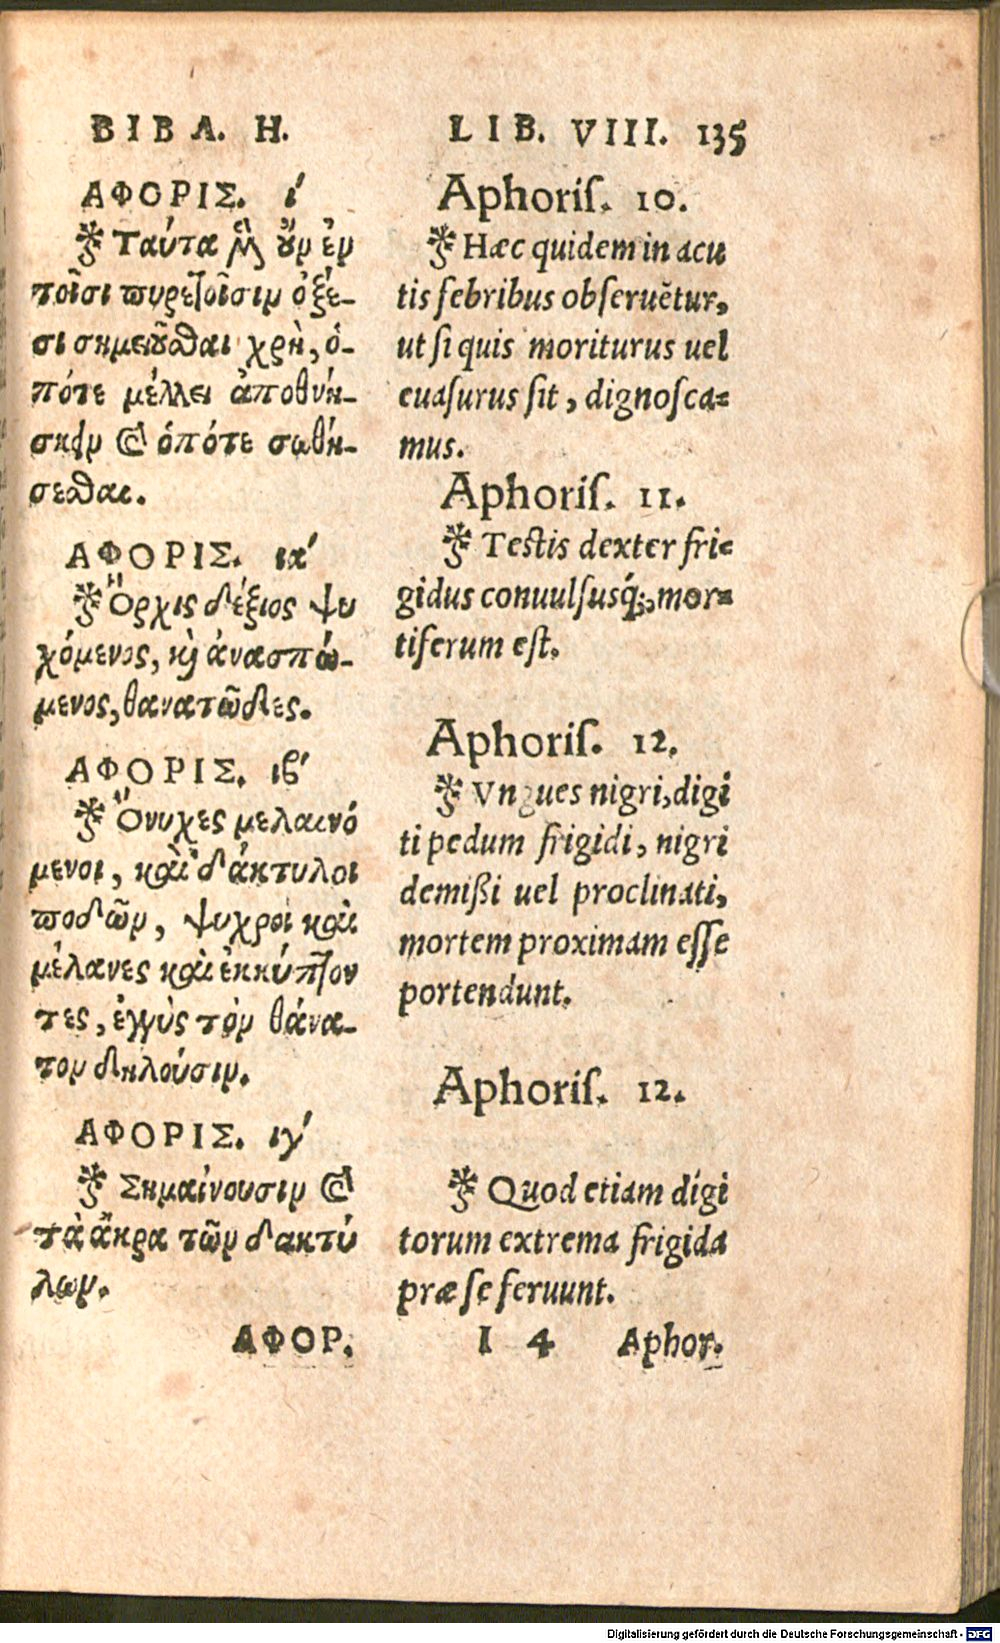 ΒΙΒΛ. Η.
ΑΦΟΡΙΣ. ί
Ταύτα μὲν οὖν ἐν
τοῖσι πυρετοῖσιν ὀξέ-
σι σημειοῦσθαι χρὴ, ὁ-
πότε μέλλει ἀποθνή-
σκειν καὶ ὁπότε σωθή-
σεσθαι.
ΑΦΟΡΙΣ. ια΄
Ὄρχις δέξιος ψυ
χόμενος, καὶ ἀνασπώ-
μενος, θανατῶδες.
ΑΦΟΡΙΣ. ιβ΄
Ὄνυχες μελαινό
μενοι, καὶ δάκτυλοι
ποδῶν, ψυχροὶ καὶ
μέλανες καὶ ἐκκύπτον
τες, ἐγγὺς τὸν θάνα-
τον δηλούσιν.
ΑΦΟΡΙΣ. ιγ΄
Σημαίνουσιν καὶ
τὰ ἄκρα τῶν δακτύ
λων.
ΑΦΟΡ.
LIB. VIII. 135
Aphoriſ. 10.
Hæc quidem in acu
tis febribus obſeruẽtur,
ut ſi quis moriturus uel
euaſurus ſit, dignoſca=
mus.
Aphoriſ. 11.
Teſtis dexter fri=
gidus conuulſusq́;, mor=
tiferum eſt.
Aphoriſ. 12.
Vngues nigri, digi
ti pedum frigidi, nigri
demißi uel proclinati,
mortem proximam eſſe
portendunt.
Aphoriſ. 12.
Quod etiam digi
torum extrema frigida
præ ſe feruunt.
I 4 Aphor.
Digitalisierung gefördert durch die Deutsche Forschungsgemeinschaft - DFG